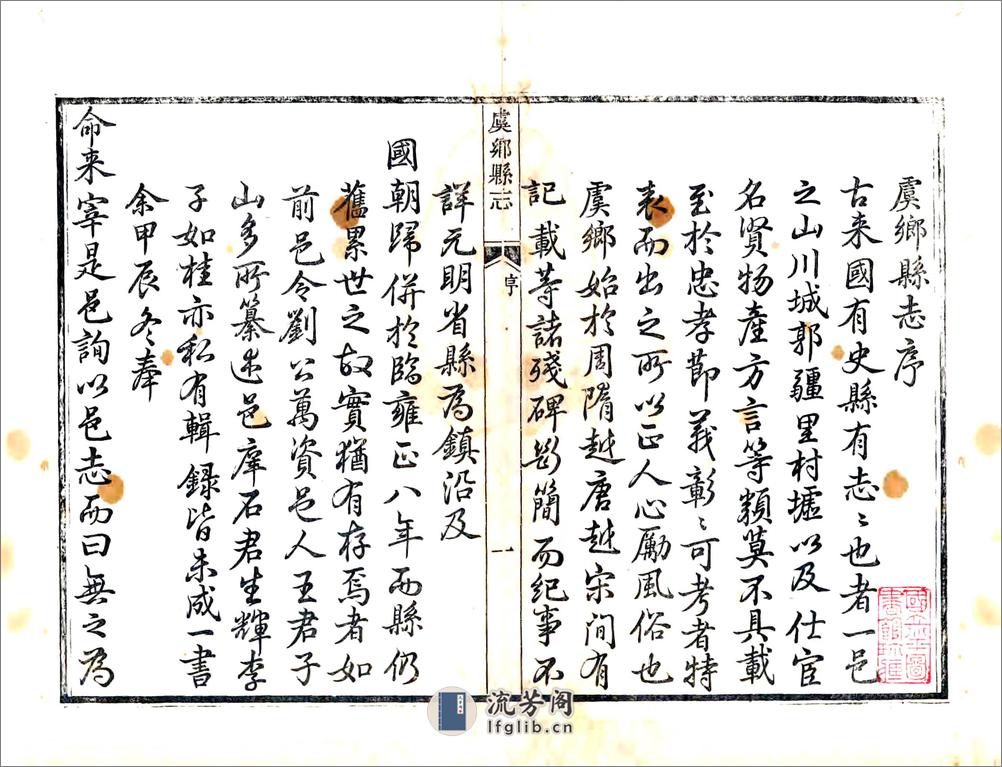 虞鄉縣志序
古来國有史縣有志〻也者一邑
之山川城郭疆里村墟以及仕宦
名賢物產方言等類莫不具載
至於忠孝節義彰〻可考者特
表而出之所以正人心勵風俗也
虞鄉始於周隋越唐越宋间有
記載等諸殘碑断簡而纪事不
詳元明省縣為鎮沿及
國朝歸併於臨雍正八年而縣仍
舊累世之故實猶有存焉者如
前邑令劉公萬資邑人王君子
山多所纂述邑庠石君生輝李
子如桂亦私有輯録皆未成一書
余甲辰冬奉
命来宰是邑詢以邑志而曰無之為
虞鄉縣志
序
一
流芳阁
lfglib.cn